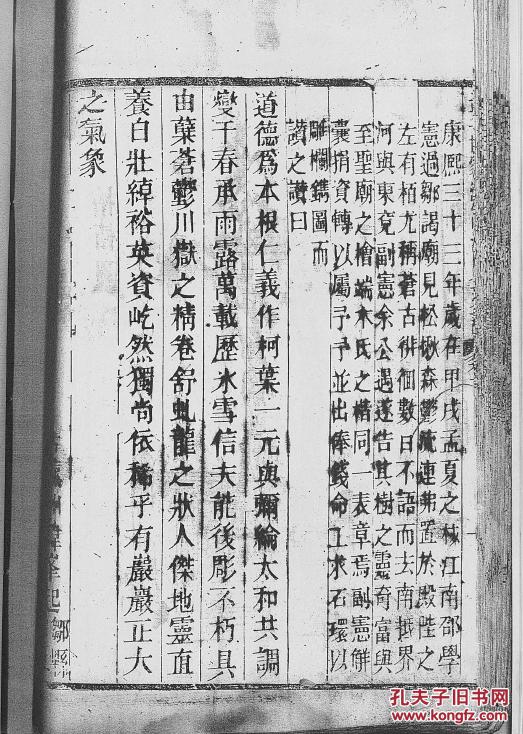 康熙三十三年歲在甲戌孟夏之杪江南邵學
憲過鄒謁廟見松楸森鬱流連弗置於殿陛之
左有栢尤稱蒼古徘徊數日不語而去南抵界
河與東兗副憲余公遇遂告其樹之靈奇富與
至聖廟之檜端木氏之楷同一表章焉副憲解
囊捐資轉以屬予予並出俸錢命工求石環以
雕欄鐫圖而
讃之讃曰
道德為本根仁義作柯葉一元與彌綸太和共調
燮千春承雨露萬載歷氷雪信夫能後彫不朽具
由蘖蒼鬱川嶽之精卷舒虬龍之狀人傑地靈直
養自壯綽裕英資屹然獨尚依稀乎有巖巖正大
之氣象
孔夫子旧书网
www.kongfz.com